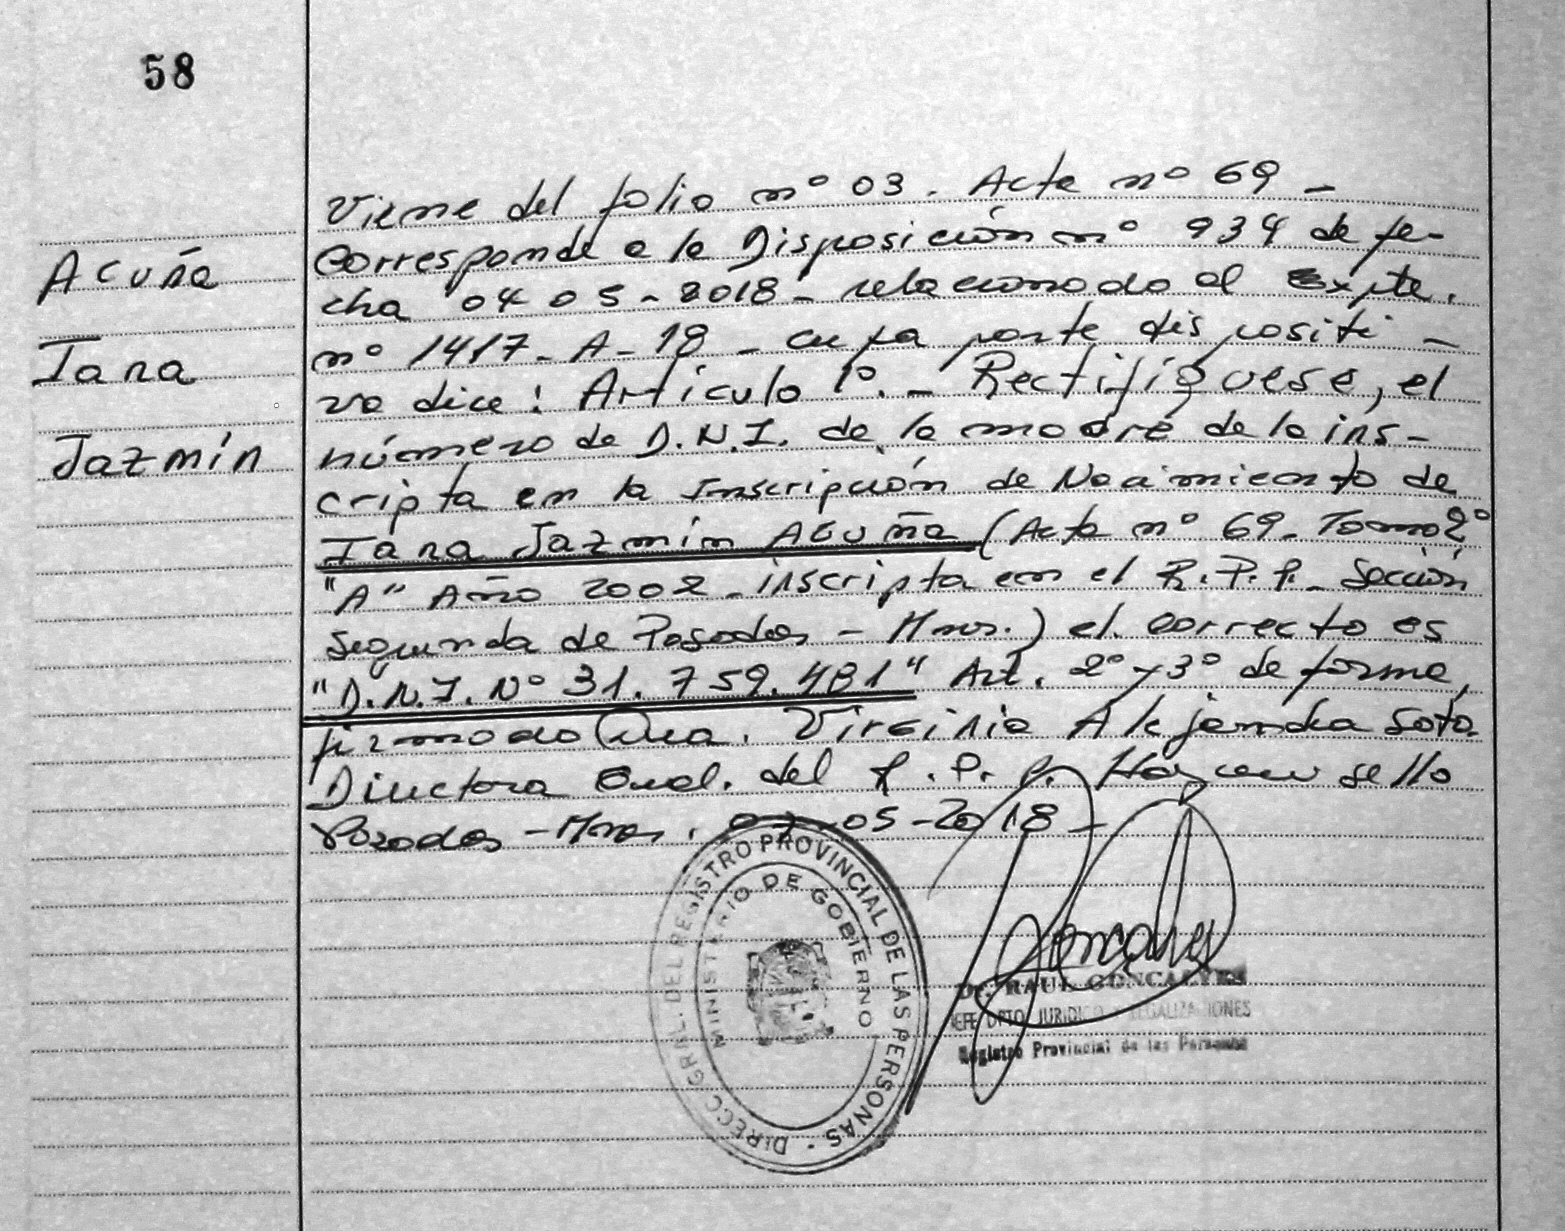 58
Acuña
Iara
Jazmín
Viene del folio nº 03. Acta nº 69 -
Corresponde a la Disposición nº 934 de fe-
cha 04 05-2018- relacionado al Expte.
nº 1417-A-18 - cuya parte dispositi -
va dice: Artículo 1º. - Rectifíquese, el
número de D.N.I. de la madre de la ins-
cripta en la Inscripción de Nacimiento de
Iara Jazmín ACUÑA (Acta nº 69. Tomo 2º
"A" Año 2002 - inscripta en el R.P.P. Sección
Segunda de Posadas - Mnes.) el correcto es
"D.N.I. Nº 31.759.481" Art. 2º y 3º de forma,
firmado Dra. Virginia Alejandra Soto.
Directora Gral. del R.P.P. Hay un sello
Posadas - Mnes. 07-05-2018 -
DIRECC. GRAL. DEL REGISTRO PROVINCIAL DE LAS PERSONAS -
MINISTERIO DE GOBIERNO
Dr. RAUL GONCALVES
JEFE DPTO. JURIDICO Y LEGALIZACIONES
Registro Provincial de las Personas